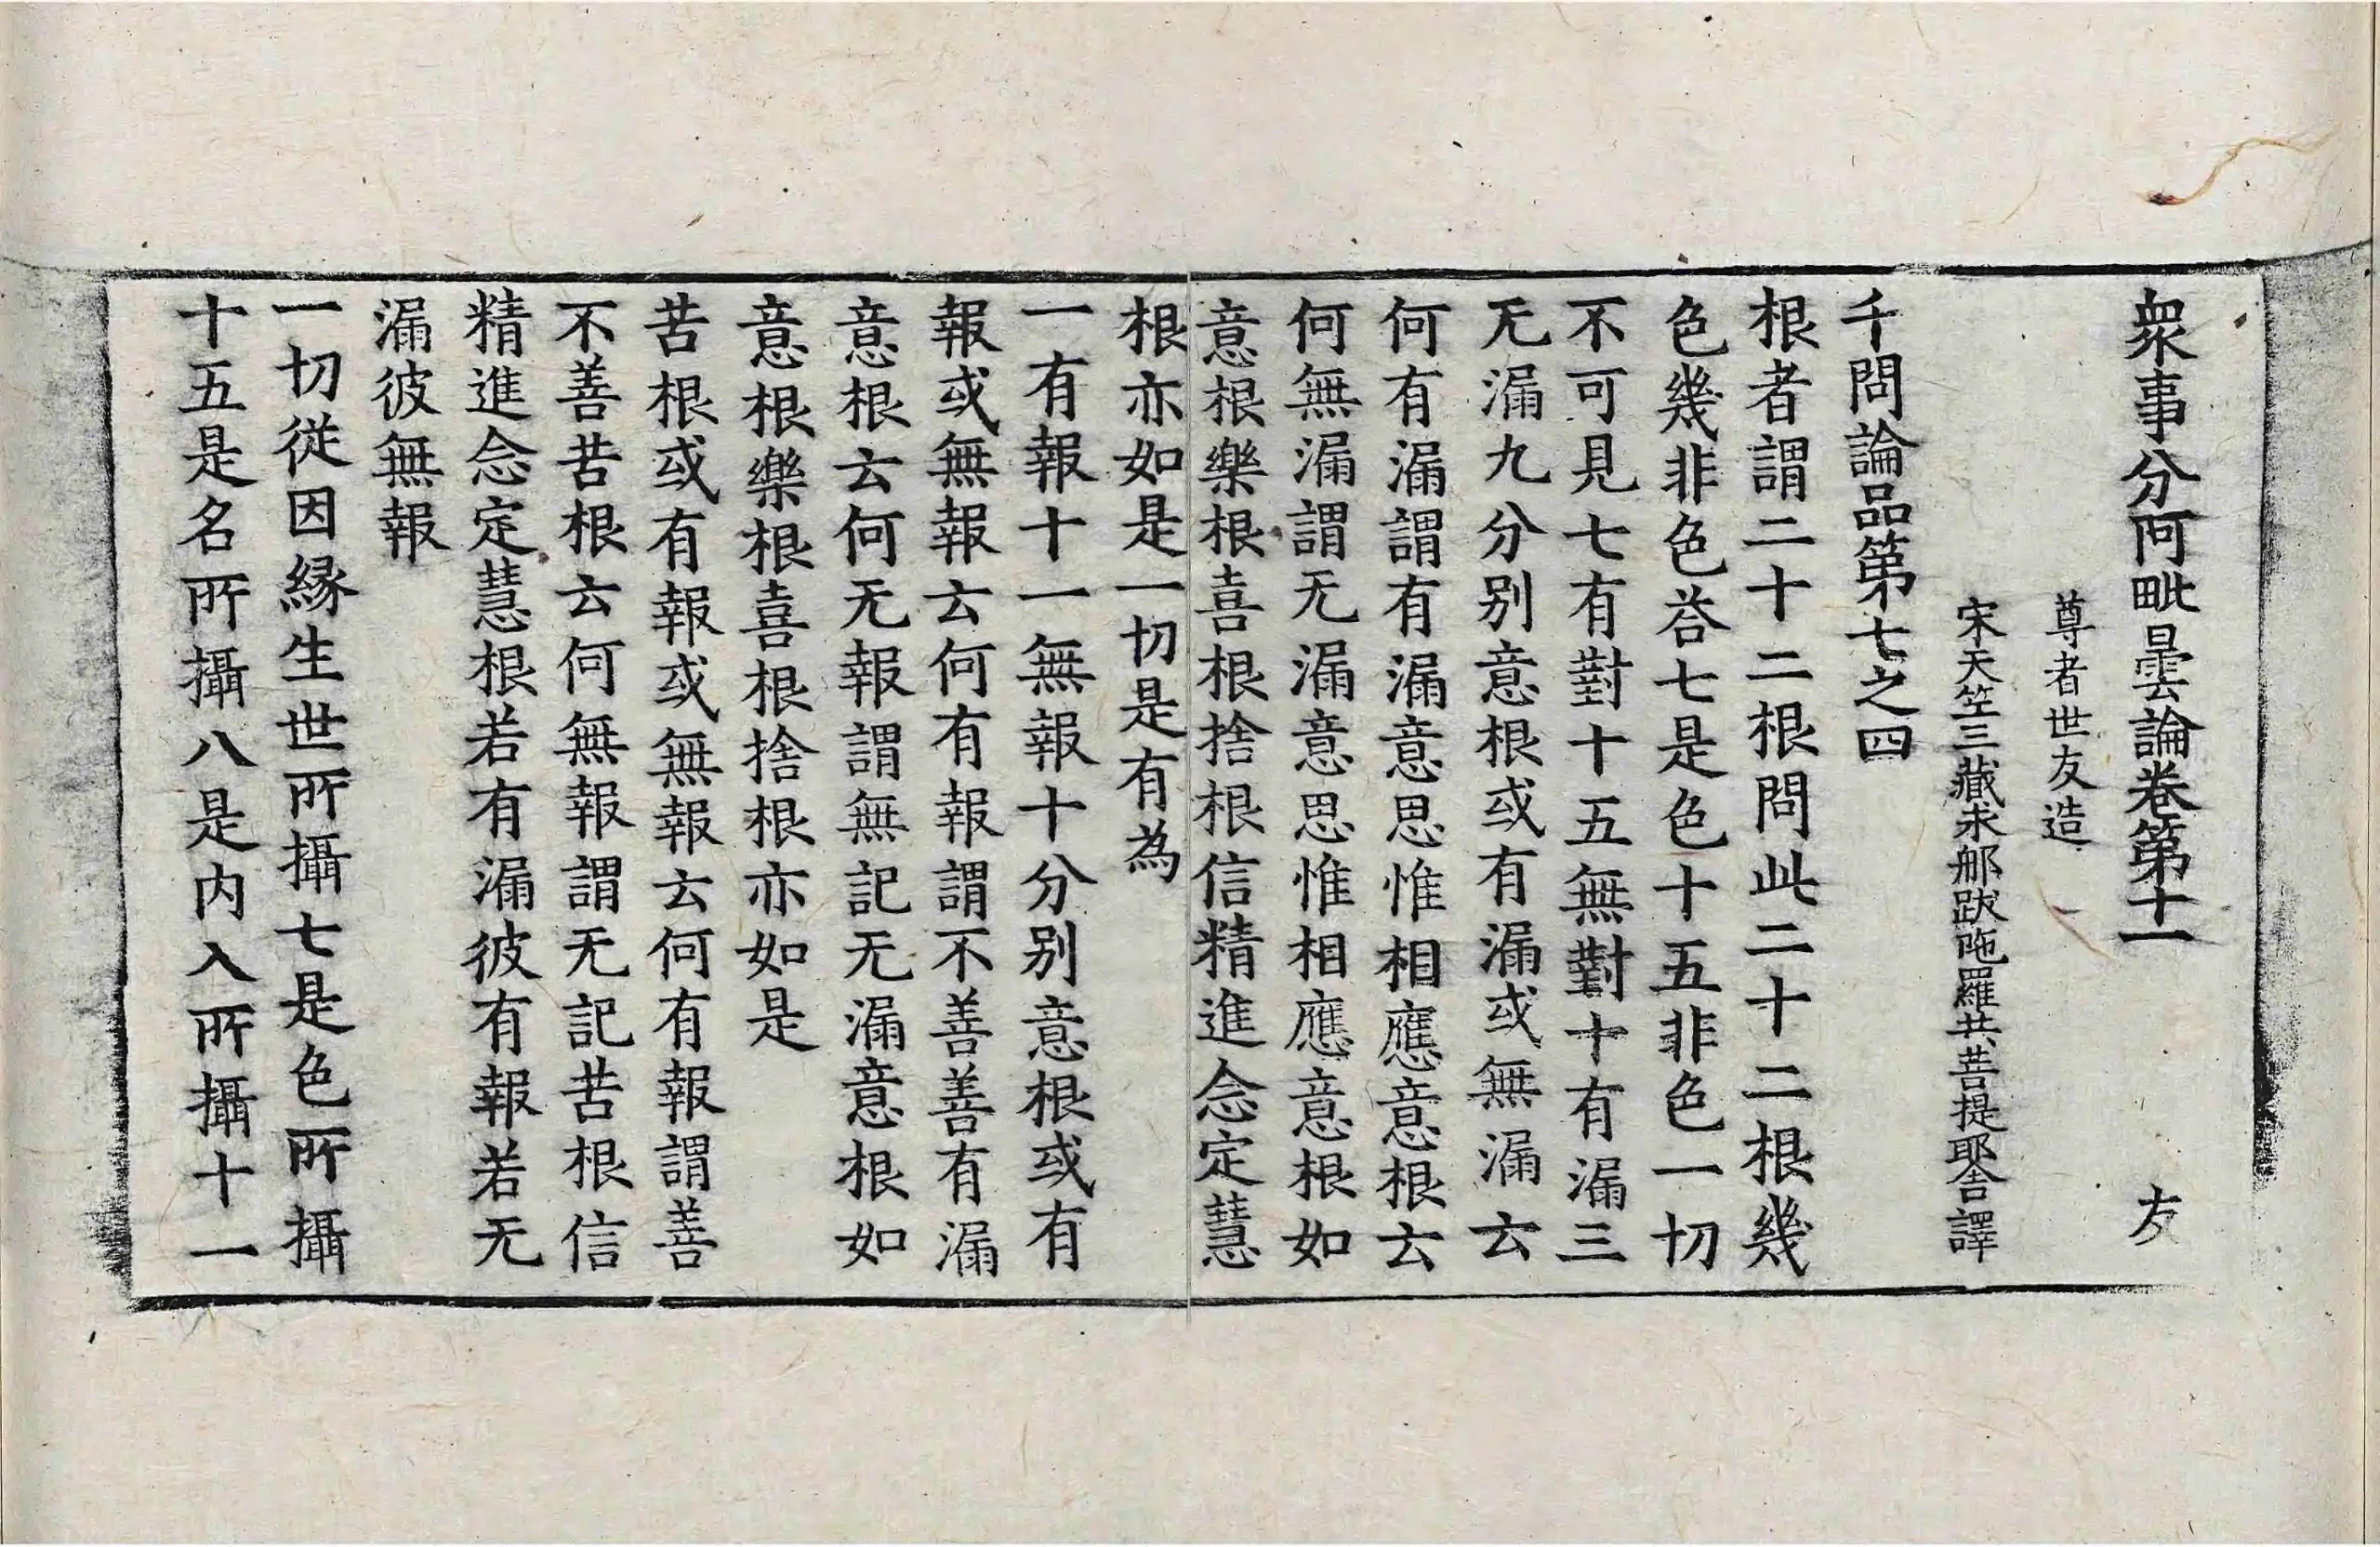 衆事分阿毗曇論卷第十一 友
尊者世友造
宋天竺三藏求那跋陁羅共菩提耶舍譯
千問論品第七之四
根者謂二十二根問此二十二根幾
色幾非色荅七是色十五非色一切
不可見七有對十五無對十有漏三
无漏九分别意根或有漏或無漏云
何有漏謂有漏意思惟相應意根云
何無漏謂无漏意思惟相應意根如
意根樂根喜根捨根信精進念定慧
根亦如是一切是有為
一有報十一無報十分别意根或有
報或無報云何有報謂不善善有漏
意根云何无報謂無記无漏意根如
意根樂根喜根捨根亦如是
苦根或有報或無報云何有報謂善
不善苦根云何無報謂无記苦根信
精進念定慧根若有漏彼有報若无
漏彼無報
一切從因緣生世所攝七是色所攝
十五是名所攝八是内入所攝十一